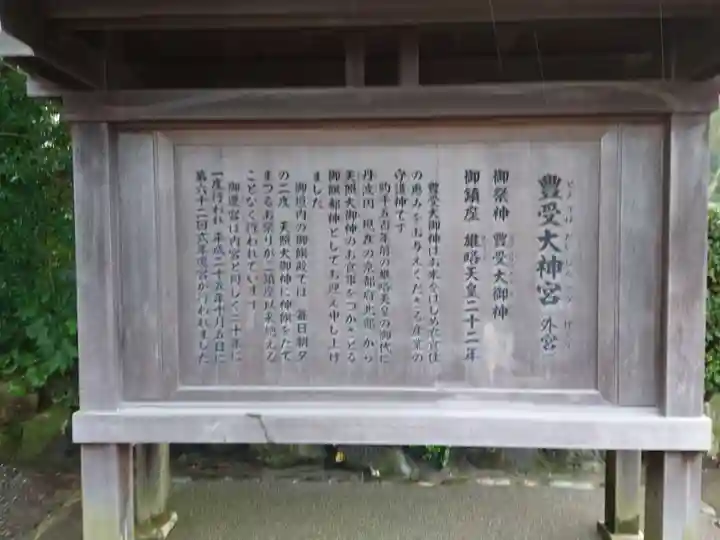 豊受大神宮 外宮
とようけだいじんぐう げくう
御祭神 豊受大御神
御鎮座 雄略天皇二十二年
豊受大御神はお米をはじめ衣食住
の恵みをお与えくださる産業の
守護神です
約千五百年前の雄略天皇の御代に
丹波国 現在の京都府北部 から
天照大御神のお食事をつかさどる
御饌都神としてお迎え申し上げ
ました
御垣内の御饌殿では 毎日朝夕
の二度 天照大御神に神饌をたて
まつるお祭りがご鎮座以来絶える
ことなく行われています
御遷宮は内宮と同じく二十年に
一度行われ 平成二十五年十月五日に
第六十二回式年遷宮が行われました